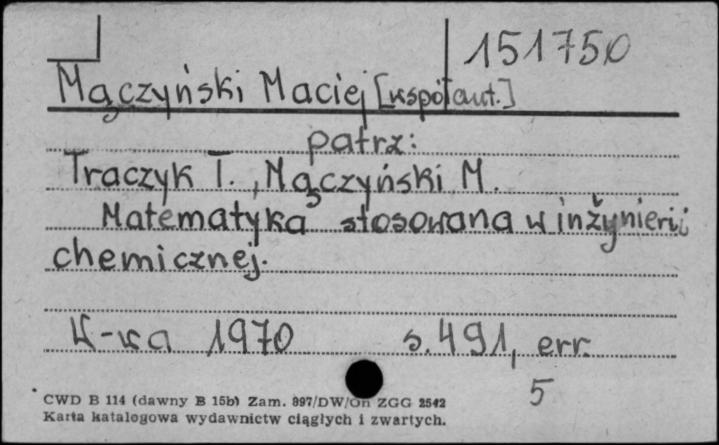 151750
Mączyński Maciej [współaut.]
patrz:
Traczyk T., Mączyński M.
Matematyka stosowana w inżynierii
chemicznej.
W-wa 1970 s. 491, err.
5
CWD B 114 (dawny B 15b) Zam. 897/DW/On ZGG 2542
Karta katalogowa wydawnictw ciągłych i zwartych.